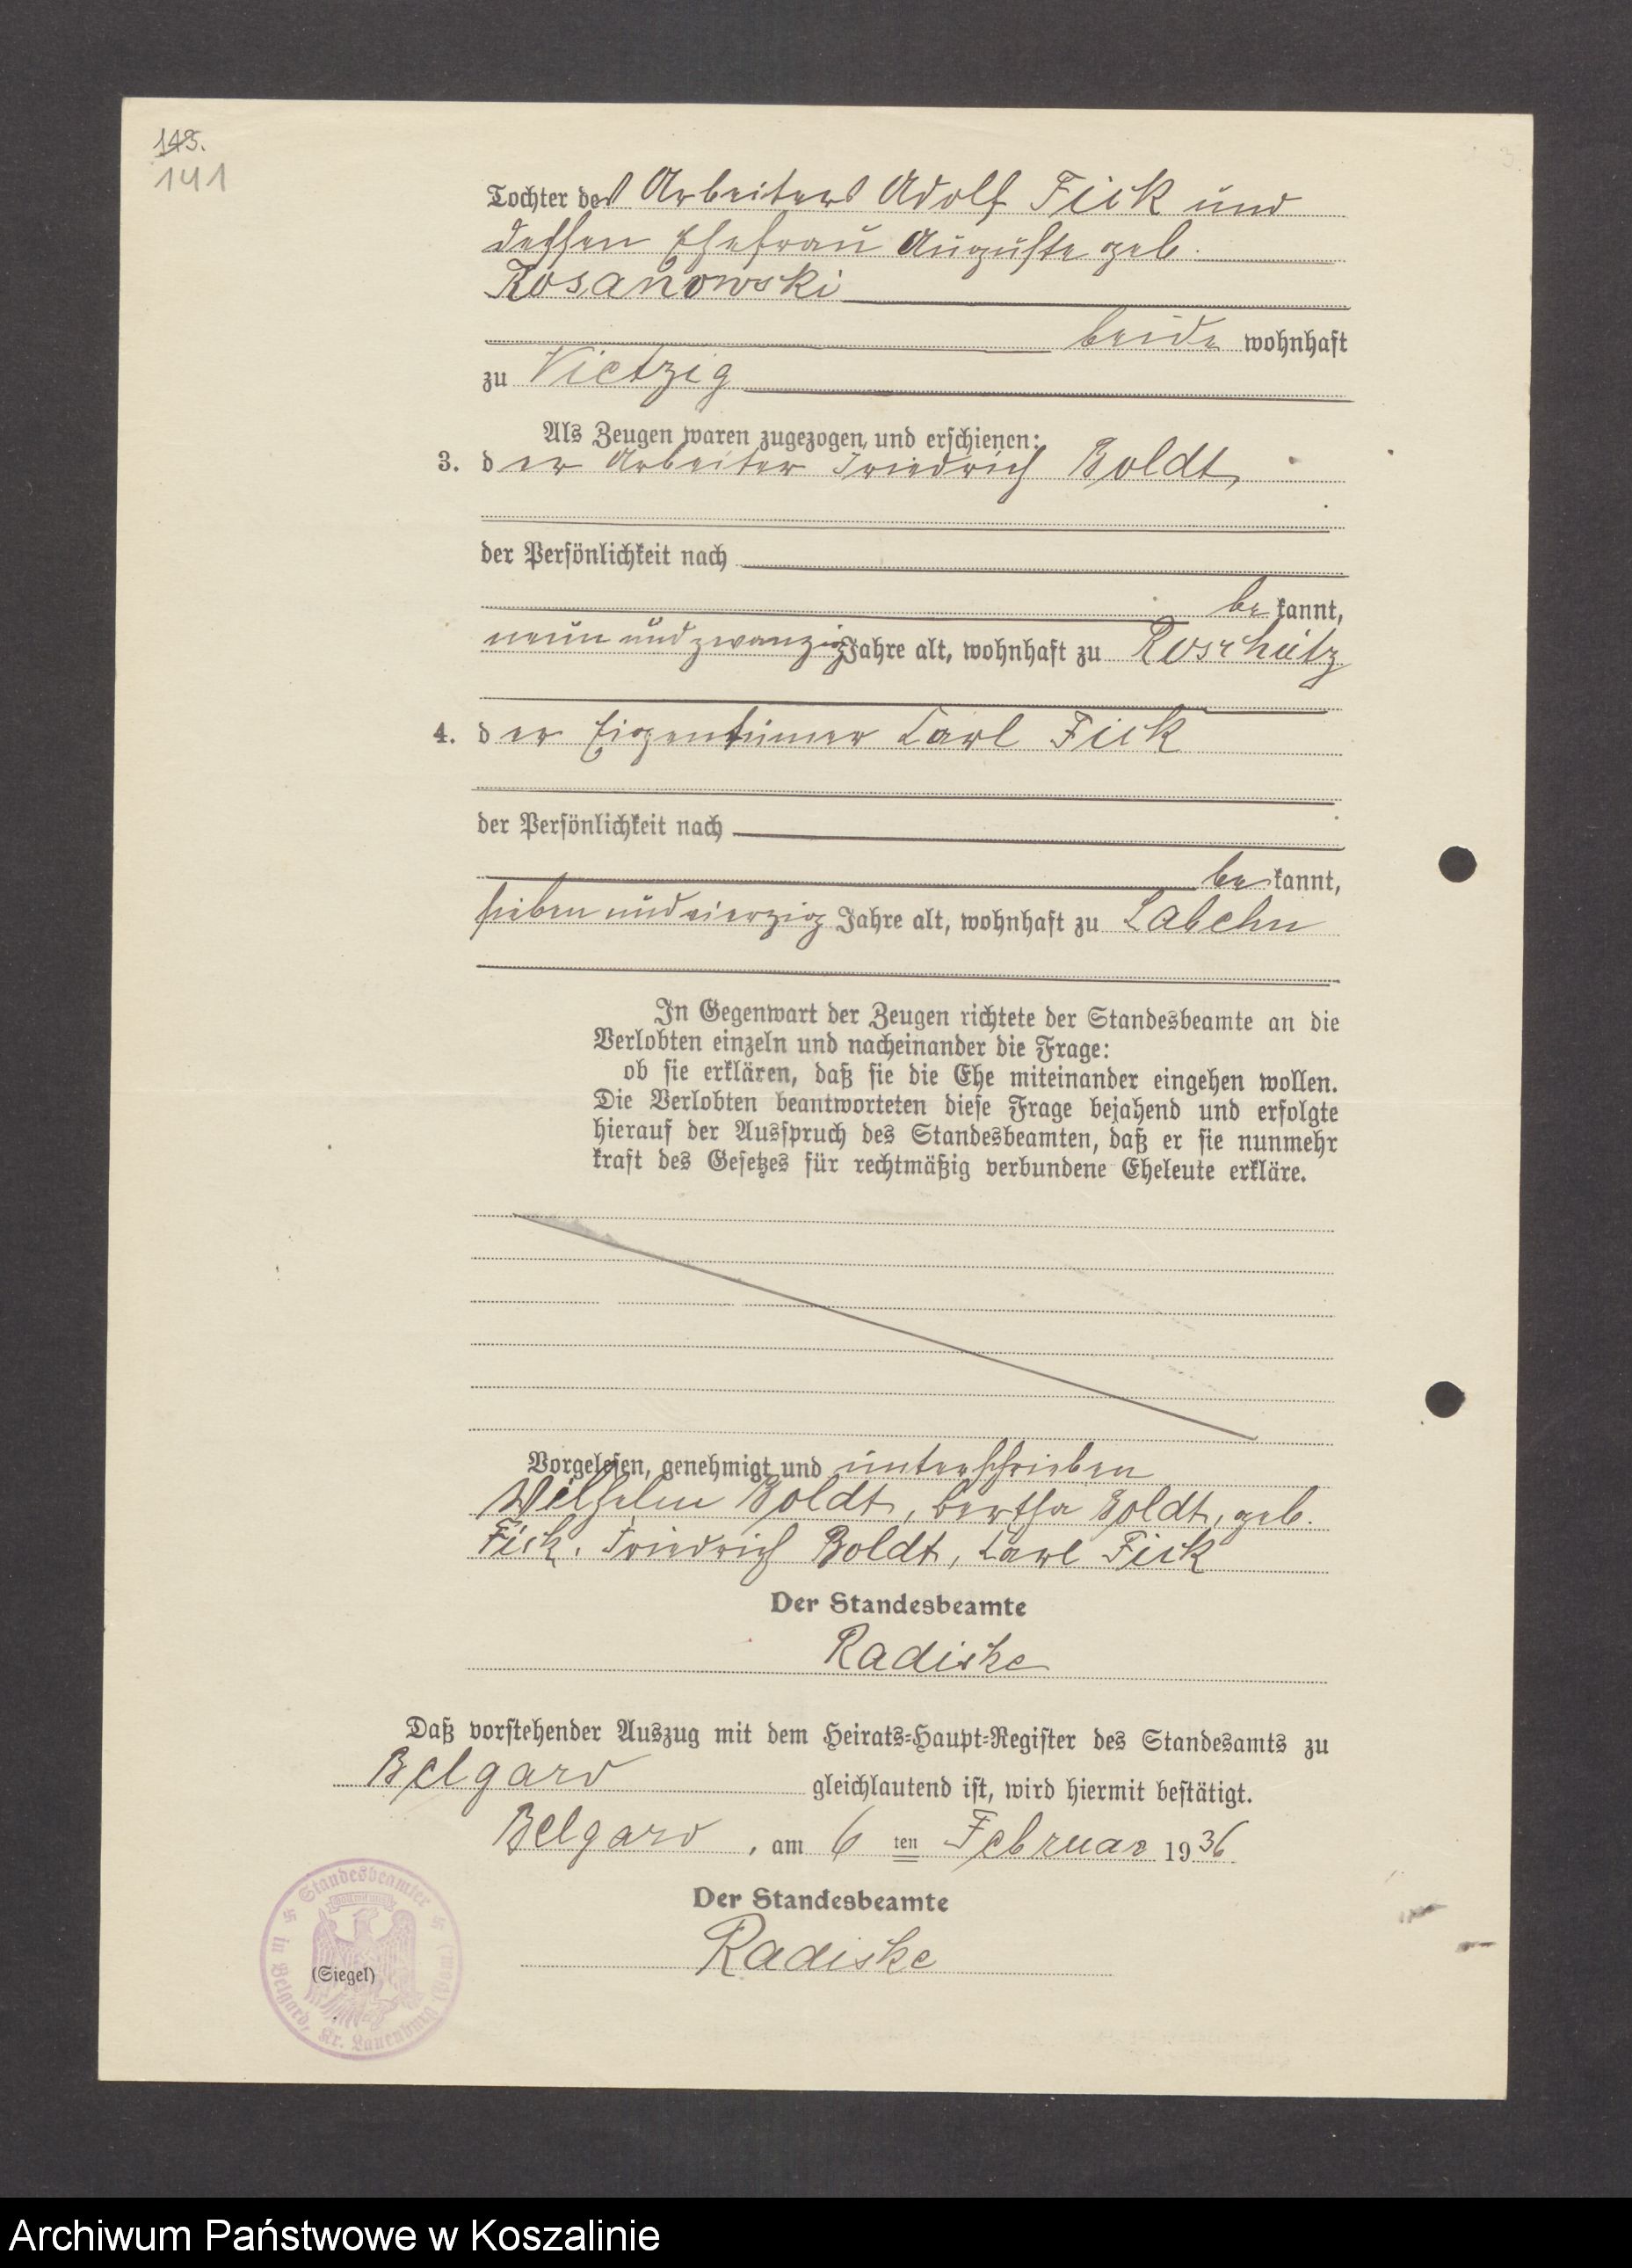 145.
141
Tochter des Arbeiters Adolf Fick und
dessen Ehefrau Auguste geb.
Rosanowski
beide wohnhaft
zu Vietzig
Als Zeugen waren zugezogen und erschienen:
3. der Arbeiter Friedrich Boldt,
der Persönlichkeit nach
be kannt,
neun und zwanzig Jahre alt, wohnhaft zu Roschütz
4. der Eigentümer Carl Fick
der Persönlichkeit nach
be kannt,
sieben und vierzig Jahre alt, wohnhaft zu Labehn
In Gegenwart der Zeugen richtete der Standesbeamte an die
Verlobten einzeln und nacheinander die Frage:
ob sie erklären, daß sie die Ehe miteinander eingehen wollen.
Die Verlobten beantworteten diese Frage bejahend und erfolgte
hierauf der Ausspruch des Standesbeamten, daß er sie nunmehr
kraft des Gesetzes für rechtmäßig verbundene Eheleute erkläre.
Vorgelesen, genehmigt und unterschrieben
Wilhelm Boldt, Bertha Boldt, geb.
Fick. Friedrich Boldt, Carl Fick
Der Standesbeamte
Radiske
Daß vorstehender Auszug mit dem Heirats-Haupt-Register des Standesamts zu
Belgard gleichlautend ist, wird hiermit bestätigt.
Belgard, am 6 ten Februar 1936
Der Standesbeamte
Radiske
(Siegel)
Standesbeamter
in Belgard, Kr. Lauenburg (Pom)
Archiwum Państwowe w Koszalinie